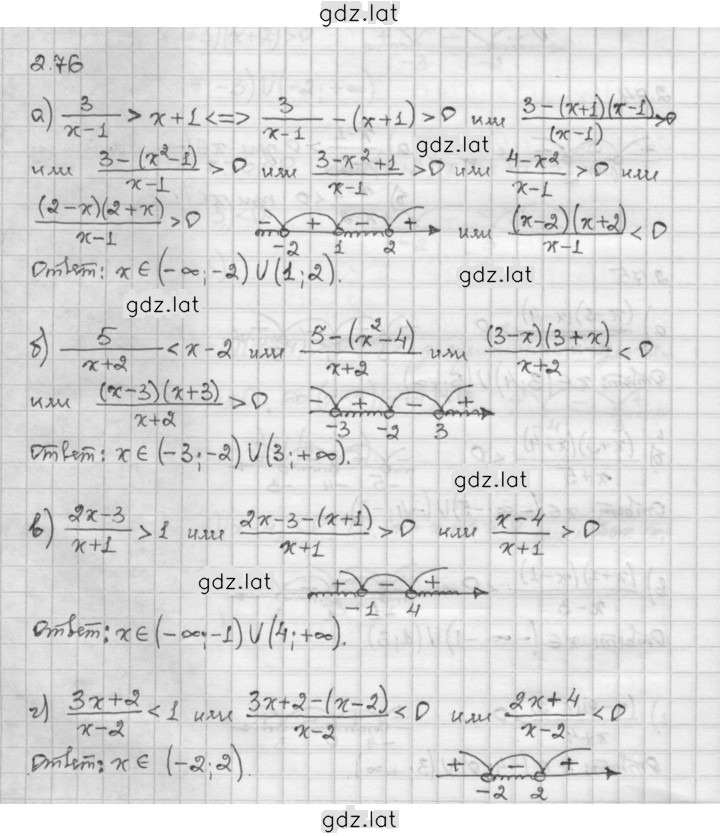 gdz.lat
2.76
а) 3/(x-1) > x+1 <=> 3/(x-1) - (x+1) > 0 или (3-(x+1)(x-1))/(x-1) > 0
gdz.lat
или (3-(x²-1))/(x-1) > 0 или (3-x²+1)/(x-1) > 0 или (4-x²)/(x-1) > 0 или
((2-x)(2+x))/(x-1) > 0 - + - + -2 1 2 или ((x-2)(x+2))/(x-1) < 0
Ответ: x ∈ (-∞; -2) ∪ (1; 2).
gdz.lat
gdz.lat
б) 5/(x+2) < x-2 или (5-(x²-4))/(x+2) или ((3-x)(3+x))/(x+2) < 0
или ((x-3)(x+3))/(x+2) > 0 - + - + -3 -2 3
Ответ: x ∈ (-3; -2) ∪ (3; +∞).
gdz.lat
в) (2x-3)/(x+1) > 1 или (2x-3-(x+1))/(x+1) > 0 или (x-4)/(x+1) > 0
gdz.lat
+ - + -1 4
Ответ: x ∈ (-∞; -1) ∪ (4; +∞).
г) (3x+2)/(x-2) < 1 или (3x+2-(x-2))/(x-2) < 0 или (2x+4)/(x-2) < 0
Ответ: x ∈ (-2; 2). + - + -2 2
gdz.lat